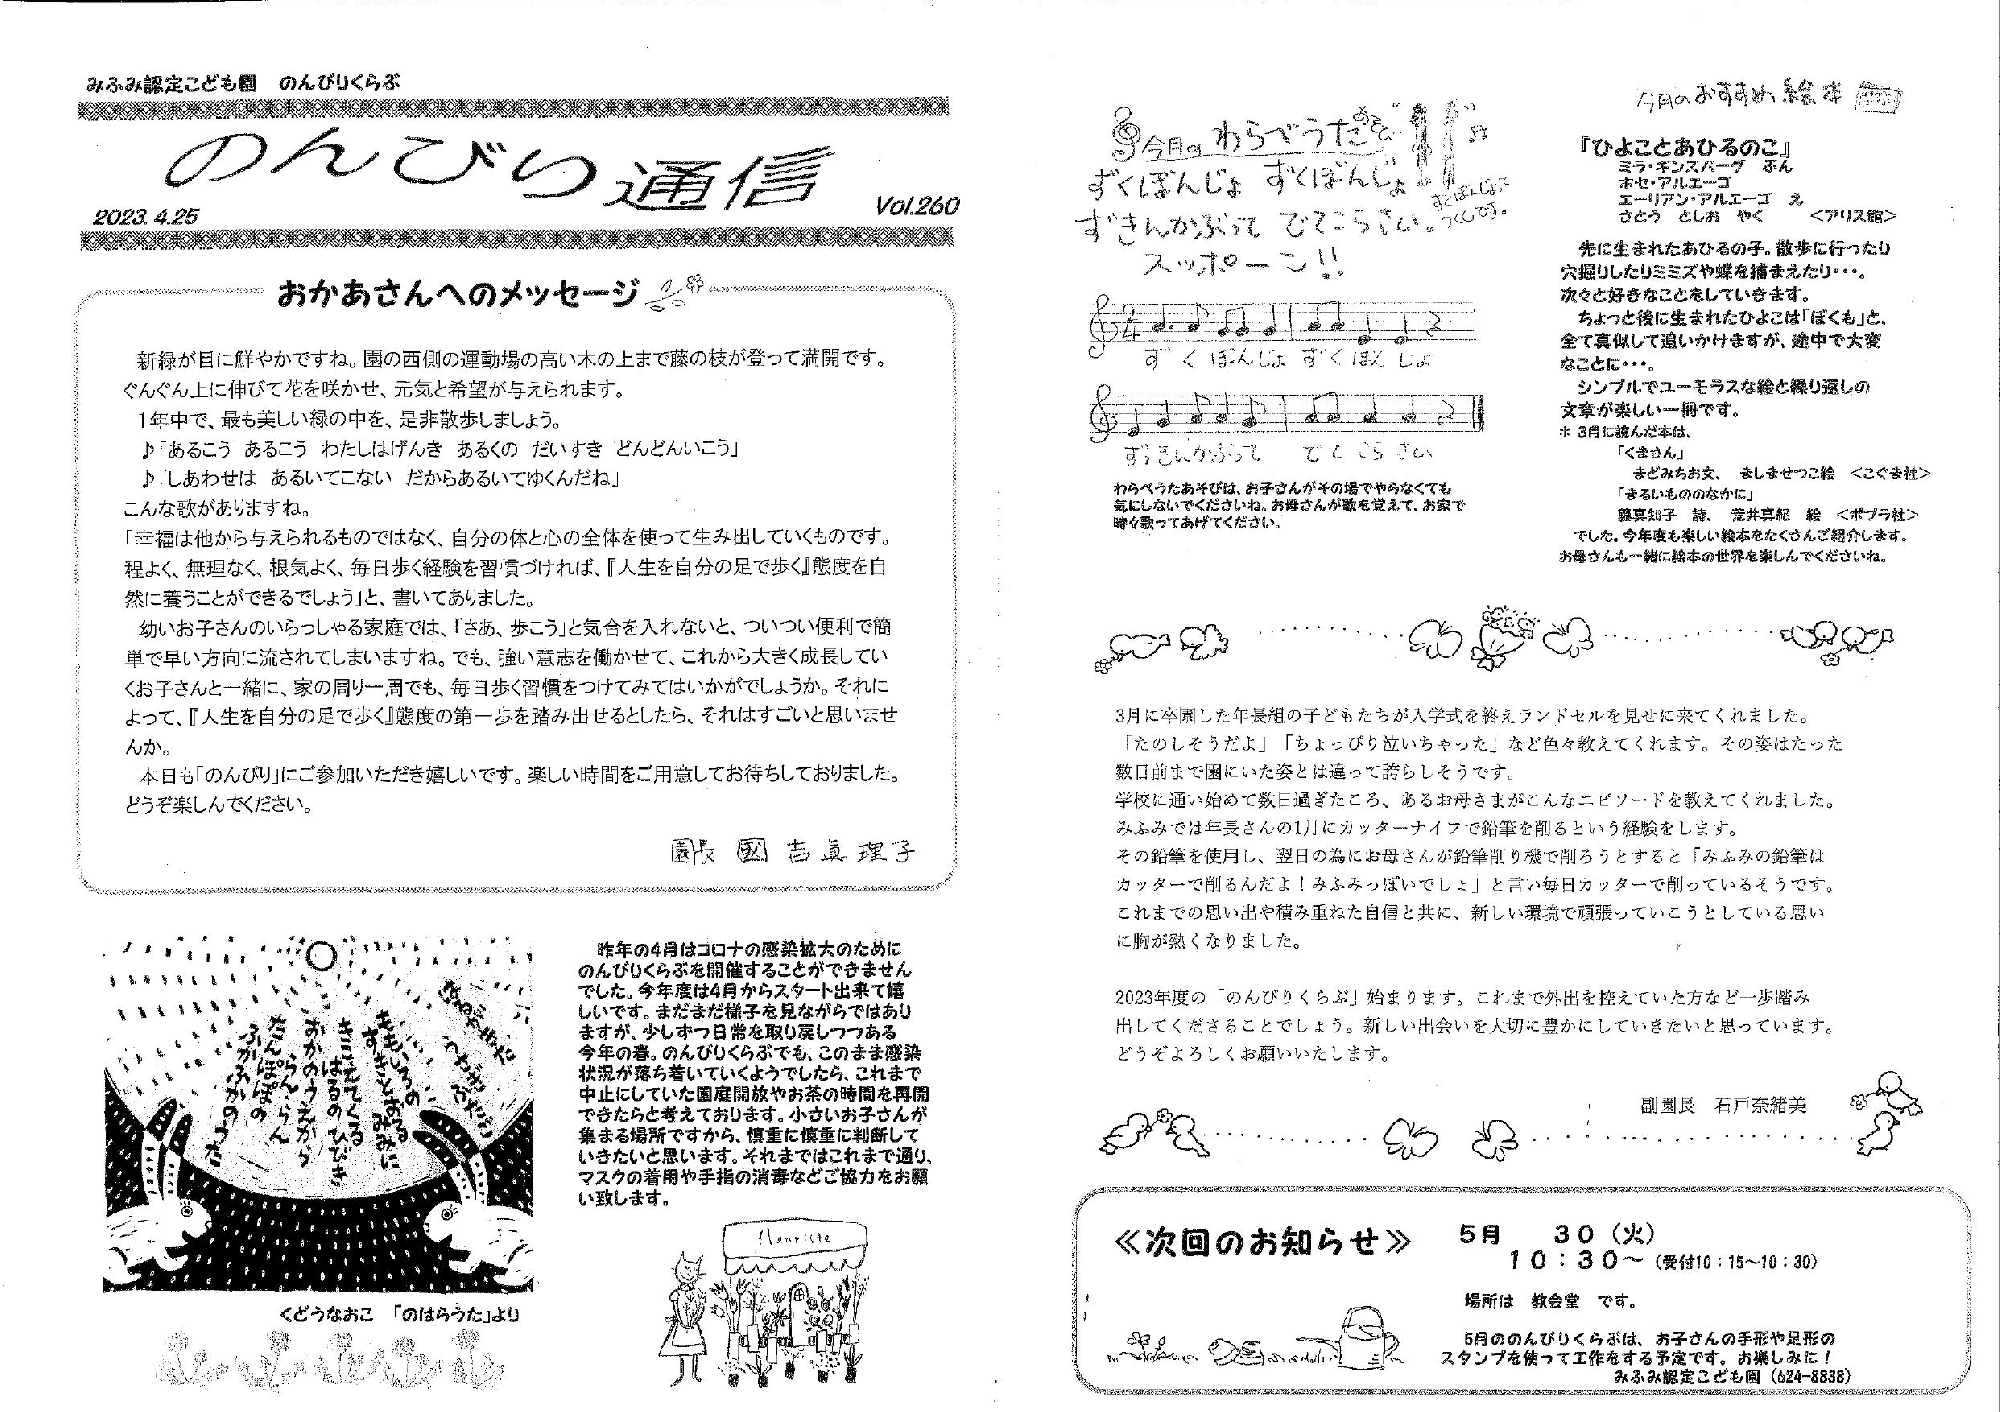 みふみ認定こども園　のんびりくらぶ
のんびり通信
2023.4.25
Vol.260
おかあさんへのメッセージ
新緑が目に鮮やかですね。園の西側の運動場の高い木の上まで藤の枝が登って満開です。
ぐんぐん上に伸びて花を咲かせ、元気と希望が与えられます。
1年中で、最も美しい緑の中を、是非散歩しましょう。
♪「あるこう　あるこう　わたしはげんき　あるくの　だいすき　どんどんいこう」
♪「しあわせは　あるいてこない　だからあるいてゆくんだね」
こんな歌がありますね。
「幸福は他から与えられるものではなく、自分の体と心の全体を使って生み出していくものです。
程よく、無理なく、根気よく、毎日歩く経験を習慣づければ、『人生を自分の足で歩く』態度を自
然に養うことができるでしょう」と、書いてありました。
幼いお子さんのいらっしゃる家庭では、「さあ、歩こう」と気合を入れないと、ついつい便利で簡
単で早い方向に流されてしまいますね。でも、強い意志を働かせて、これから大きく成長してい
くお子さんと一緒に、家の周り一周でも、毎日歩く習慣をつけてみてはいかがでしょうか。それに
よって、『人生を自分の足で歩く』態度の第一歩を踏み出せるとしたら、それはすごいと思いませ
んか。
本日も「のんびり」にご参加いただき嬉しいです。楽しい時間をご用意してお待ちしておりました。
どうぞ楽しんでください。
園長　國吉眞理子
くどうなおこ　「のはらうた」より
昨年の4月はコロナの感染拡大のために
のんびりくらぶを開催することができません
でした。今年度は4月からスタート出来て嬉
しいです。まだまだ様子を見ながらではあり
ますが、少しずつ日常を取り戻しつつある
今年の春。のんびりくらぶでも、このまま感染
状況が落ち着いていくようでしたら、これまで
中止にしていた園庭開放やお茶の時間を再開
できたらと考えております。小さいお子さんが
集まる場所ですから、慎重に慎重に判断して
いきたいと思います。それまではこれまで通り、
マスクの着用や手指の消毒などご協力をお願
い致します。
今月のわらべうたあそび
ずくぼんじょ　ずくぼんじょ
ずきんかぶって　でてこらさい。
スッポーン!!
ず　く　ぼんじょ　ず　く　ぼん　じょ
ずきんかぶって　で　て　こら　さい
わらべうたあそびは、お子さんがその場でやらなくても
気にしないでくださいね。お母さんが歌を覚えて、お家で
時々歌ってあげてください。
今月のおすすめ絵本
『ひよことあひるのこ』
ミラ・ギンスバーグ　ぶん
ホセ・アルエーゴ
エーリアン・アルエーゴ　え
さとう　としお　やく　<アリス館>
先に生まれたあひるの子。散歩に行ったり
穴掘りしたりミミズや蝶を捕まえたり・・・。
次々と好きなことをしていきます。
ちょっと後に生まれたひよこは「ぼくも」と、
全て真似して追いかけますが、途中で大変
なことに・・・。
シンプルでユーモラスな絵と繰り返しの
文章が楽しい一冊です。
* 3月に読んだ本は、
「くまさん」
まどみちお文、　ましませつこ絵　<こぐま社>
「まるいもののなかに」
藤真知子　詩、　荒井真紀　絵　<ポプラ社>
でした。今年度も楽しい絵本をたくさんご紹介します。
お母さんも一緒に絵本の世界を楽しんでくださいね。
3月に卒園した年長組の子どもたちが入学式を終えランドセルを見せに来てくれました。
「たのしそうだよ」「ちょっぴり泣いちゃった」など色々教えてくれます。その姿はたった
数日前まで園にいた姿とは違って誇らしそうです。
学校に通い始めて数日過ぎたころ、あるお母さまがこんなエピソードを教えてくれました。
みふみでは年長さんの1月にカッターナイフで鉛筆を削るという経験をします。
その鉛筆を使用し、翌日の為にお母さんが鉛筆削り機で削ろうとすると「みふみの鉛筆は
カッターで削るんだよ！みふみっぽいでしょ」と言い毎日カッターで削っているそうです。
これまでの思い出や積み重ねた自信と共に、新しい環境で頑張っていこうとしている思い
に胸が熱くなりました。
2023年度の「のんびりくらぶ」始まります。これまで外出を控えていた方など一歩踏み
出してくださることでしょう。新しい出会いを大切に豊かにしていきたいと思っています。
どうぞよろしくお願いいたします。
副園長　石戸奈緒美
≪次回のお知らせ≫
５月　　３０（火）
１０：３０～（受付10：15～10：30）
場所は　教会堂　です。
5月ののんびりくらぶは、お子さんの手形や足形の
スタンプを使って工作をする予定です。お楽しみに！
みふみ認定こども園（624-8838）